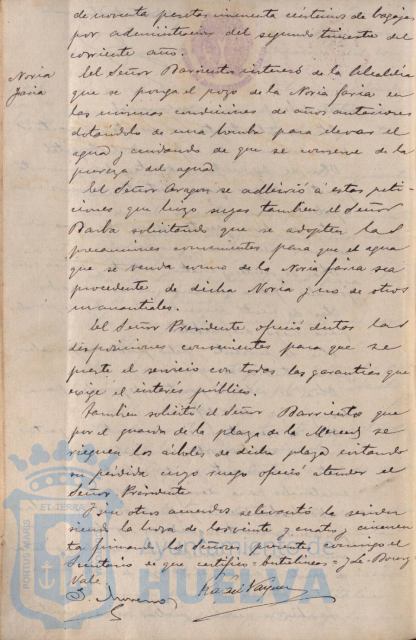 de noventa pesetas cincuenta céntimos de bagajes
por administracion del segundo trimestre del
corriente año.
Noria
Jaria
El Señor Barrientos interesó de la Alcaldia
que se ponga el pozo de la Noria jaria en
las mismas condiciones de años anteriores
dotandolo de una bomba para elevar el
agua y cuidando de que se conserve de la
pureza del agua.
El Señor Aragon se adhirió á estas peti-
ciones que hizo suyas tambien el Señor
Barba solicitando que se adopten las
precauciones convenientes para que el agua
que se venda como de la Noria jaria sea
procedente de dicha Noria y no de otros
manantiales.
El Señor Presidente ofreció dictar las
disposiciones convenientes para que se
preste el servicio con todas las garantias que
exige el interés público.
Tambien solicitó el Señor Barrientos que
por el guarda de la plaza de la Merced se
rieguen los árboles de dicha plaza evitando
su pérdida cuyo ruego ofreció atender el
Señor Presidente
Y sin otros acuerdos se levantó la sesion
siendo la hora de las veinte y cuatro y cincuen
ta firmando los Señores presentes conmigo el
Secretario de que certifico =
Vale
Ayuntamiento de
HUELVA
PORTUS MARIS
ET TERRAE